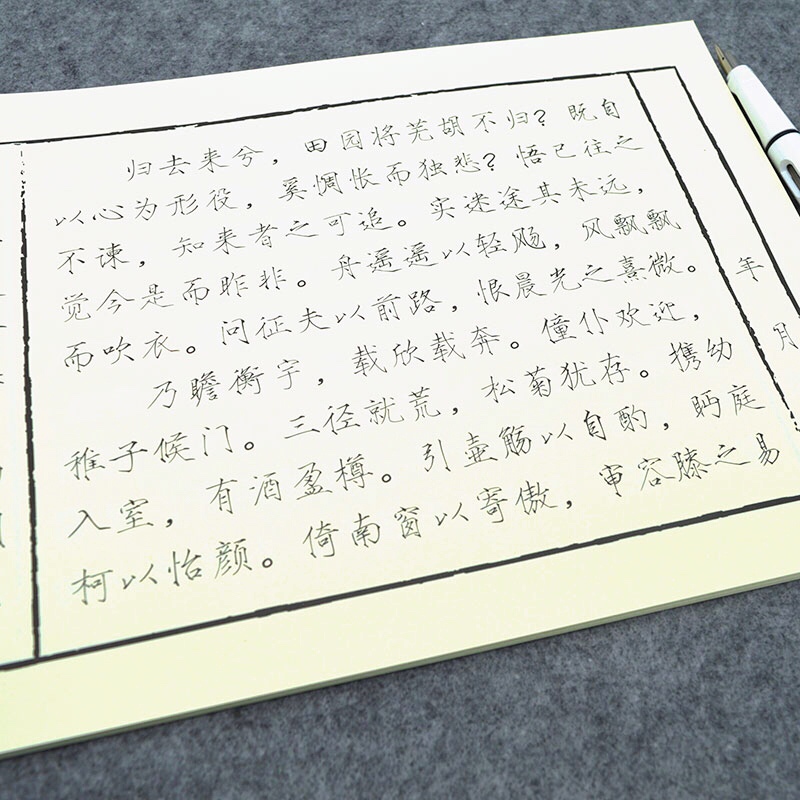 归去来兮，田园将芜胡不归？既自
以心为形役，奚惆怅而独悲？悟已往之
不谏，知来者之可追。实迷途其未远，
觉今是而昨非。舟遥遥以轻飏，风飘飘
而吹衣。问征夫以前路，恨晨光之熹微。
乃瞻衡宇，载欣载奔。僮仆欢迎，
稚子候门。三径就荒，松菊犹存。携幼
入室，有酒盈樽。引壶觞以自酌，眄庭
柯以怡颜。倚南窗以寄傲，审容膝之易
年
月